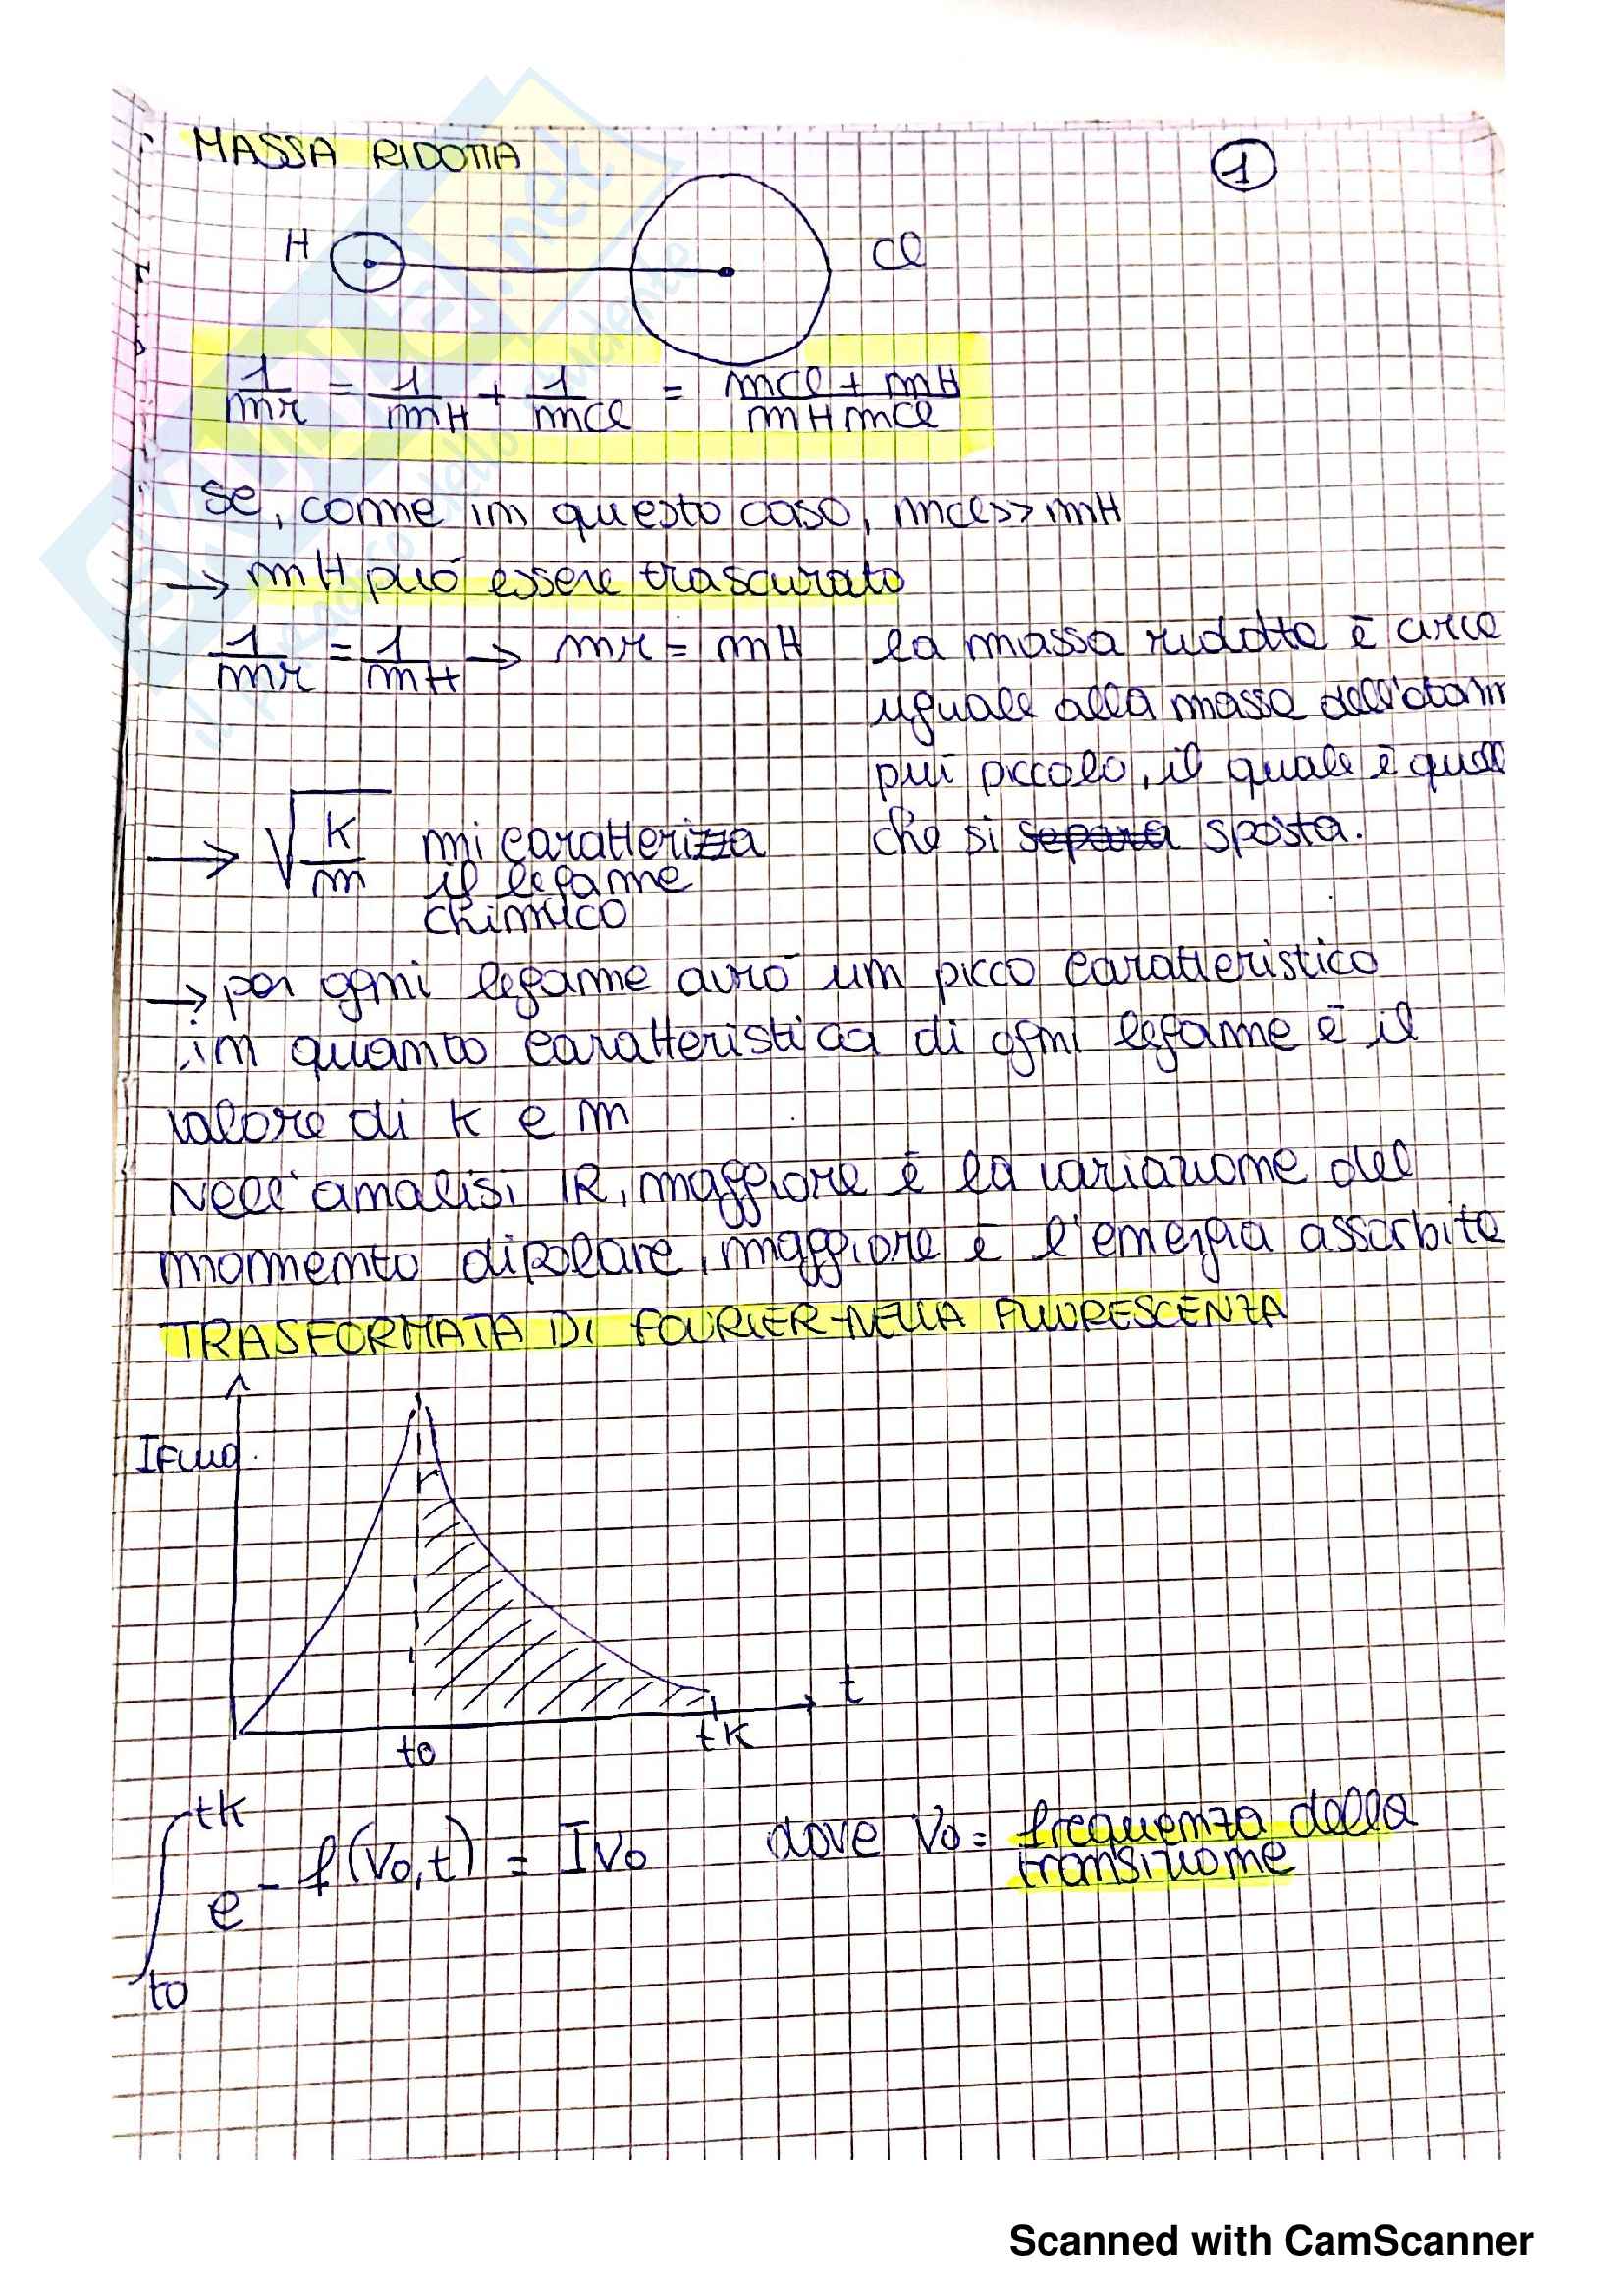 MASSA RIDOTTA
1
H Cl
1/mr = 1/mH + 1/mCl = mCl + mH / mH mCl
se, come in questo caso, mCl>>mH
→ mH può essere trascurato
1/mr = 1/mH → mr = mH la massa ridotta è circa
uguale alla massa dell'atom
più piccolo, il quale è quell
che si separa sposta.
→ √K/m mi caratterizza
il legame
chimico
→ per ogni legame avrò un picco caratteristico
in quanto caratteristica di ogni legame è il
valore di K e m
Nell'analisi IR, maggiore è la variazione del
momento dipolare, maggiore è l'energia assorbita
TRASFORMATA DI FOURIER NELLA FLUORESCENZA
t
to tK
∫ tK
e - f(νo,t) = Iνo dove νo = frequenza della
transizione
to
Scanned with CamScanner